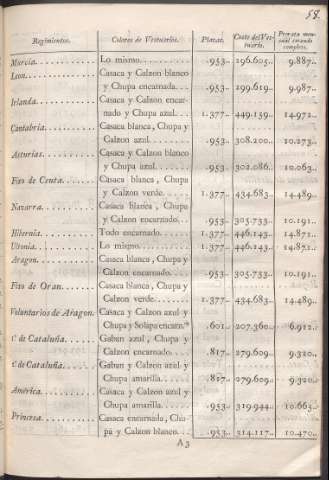 58.
Regimientos. Colores de Vestuarios. Plazas. Coste del Vestuario. Prorata mensual estando completos.
Murcia.......... Lo mismo.......... .953.. 296.605.. 9.887..
Leon............ Casaca y Calzon blanco
y Chupa encarnada... .953.. 299.619.. 9.987..
Irlanda......... Casaca y Calzon encarnado
y Chupa azul... 1.377.. 449.159.. 14.972..
Cantabria....... Casaca blanca, Chupa y
Calzon azul........ .953.. 308.200.. 10.273..
Asturias........ Casaca y Calzon blanco
y Chupa azul....... .953.. 302.086.. 10.063..
Fixo de Ceuta... Casaca blanca, Chupa
y Calzon verde.... 1.377.. 434.683.. 14.489..
Navarra......... Casaca blanca, Chupa
y Calzon encarnado... .953.. 305.733.. 10.191..
Hibernia........ Todo encarnado..... 1.377.. 446.143.. 14.871..
Utonia.......... Lo mismo.......... 1.377.. 446.143.. 14.871..
Aragon.......... Casaca blanca, Chupa y
Calzon encarnado.... .953.. 305.733.. 10.191..
Fixo de Oran.... Casaca blanca, Chupa y
Calzon verde....... 1.377.. 434.683.. 14.489..
Voluntarios de Aragon. Casaca y Calzon azul y
Chupa y Solapa encarn.da .601.. 207.360.. 6.912..
1.º de Cataluña..... Gaban azul, Chupa y
Calzon encarnado.... .817.. 279.609.. 9.320..
2.º de Cataluña..... Gaban y Calzon azul y
Chupa amarilla..... .817.. 279.609.. 9.320..
America......... Casaca y Calzon azul y
Chupa amarilla..... .953.. 319.944.. 10.665..
Princesa........ Casaca encarnada, Chupa
y Calzon blanco... .953.. 314.117.. 10.470..
A3